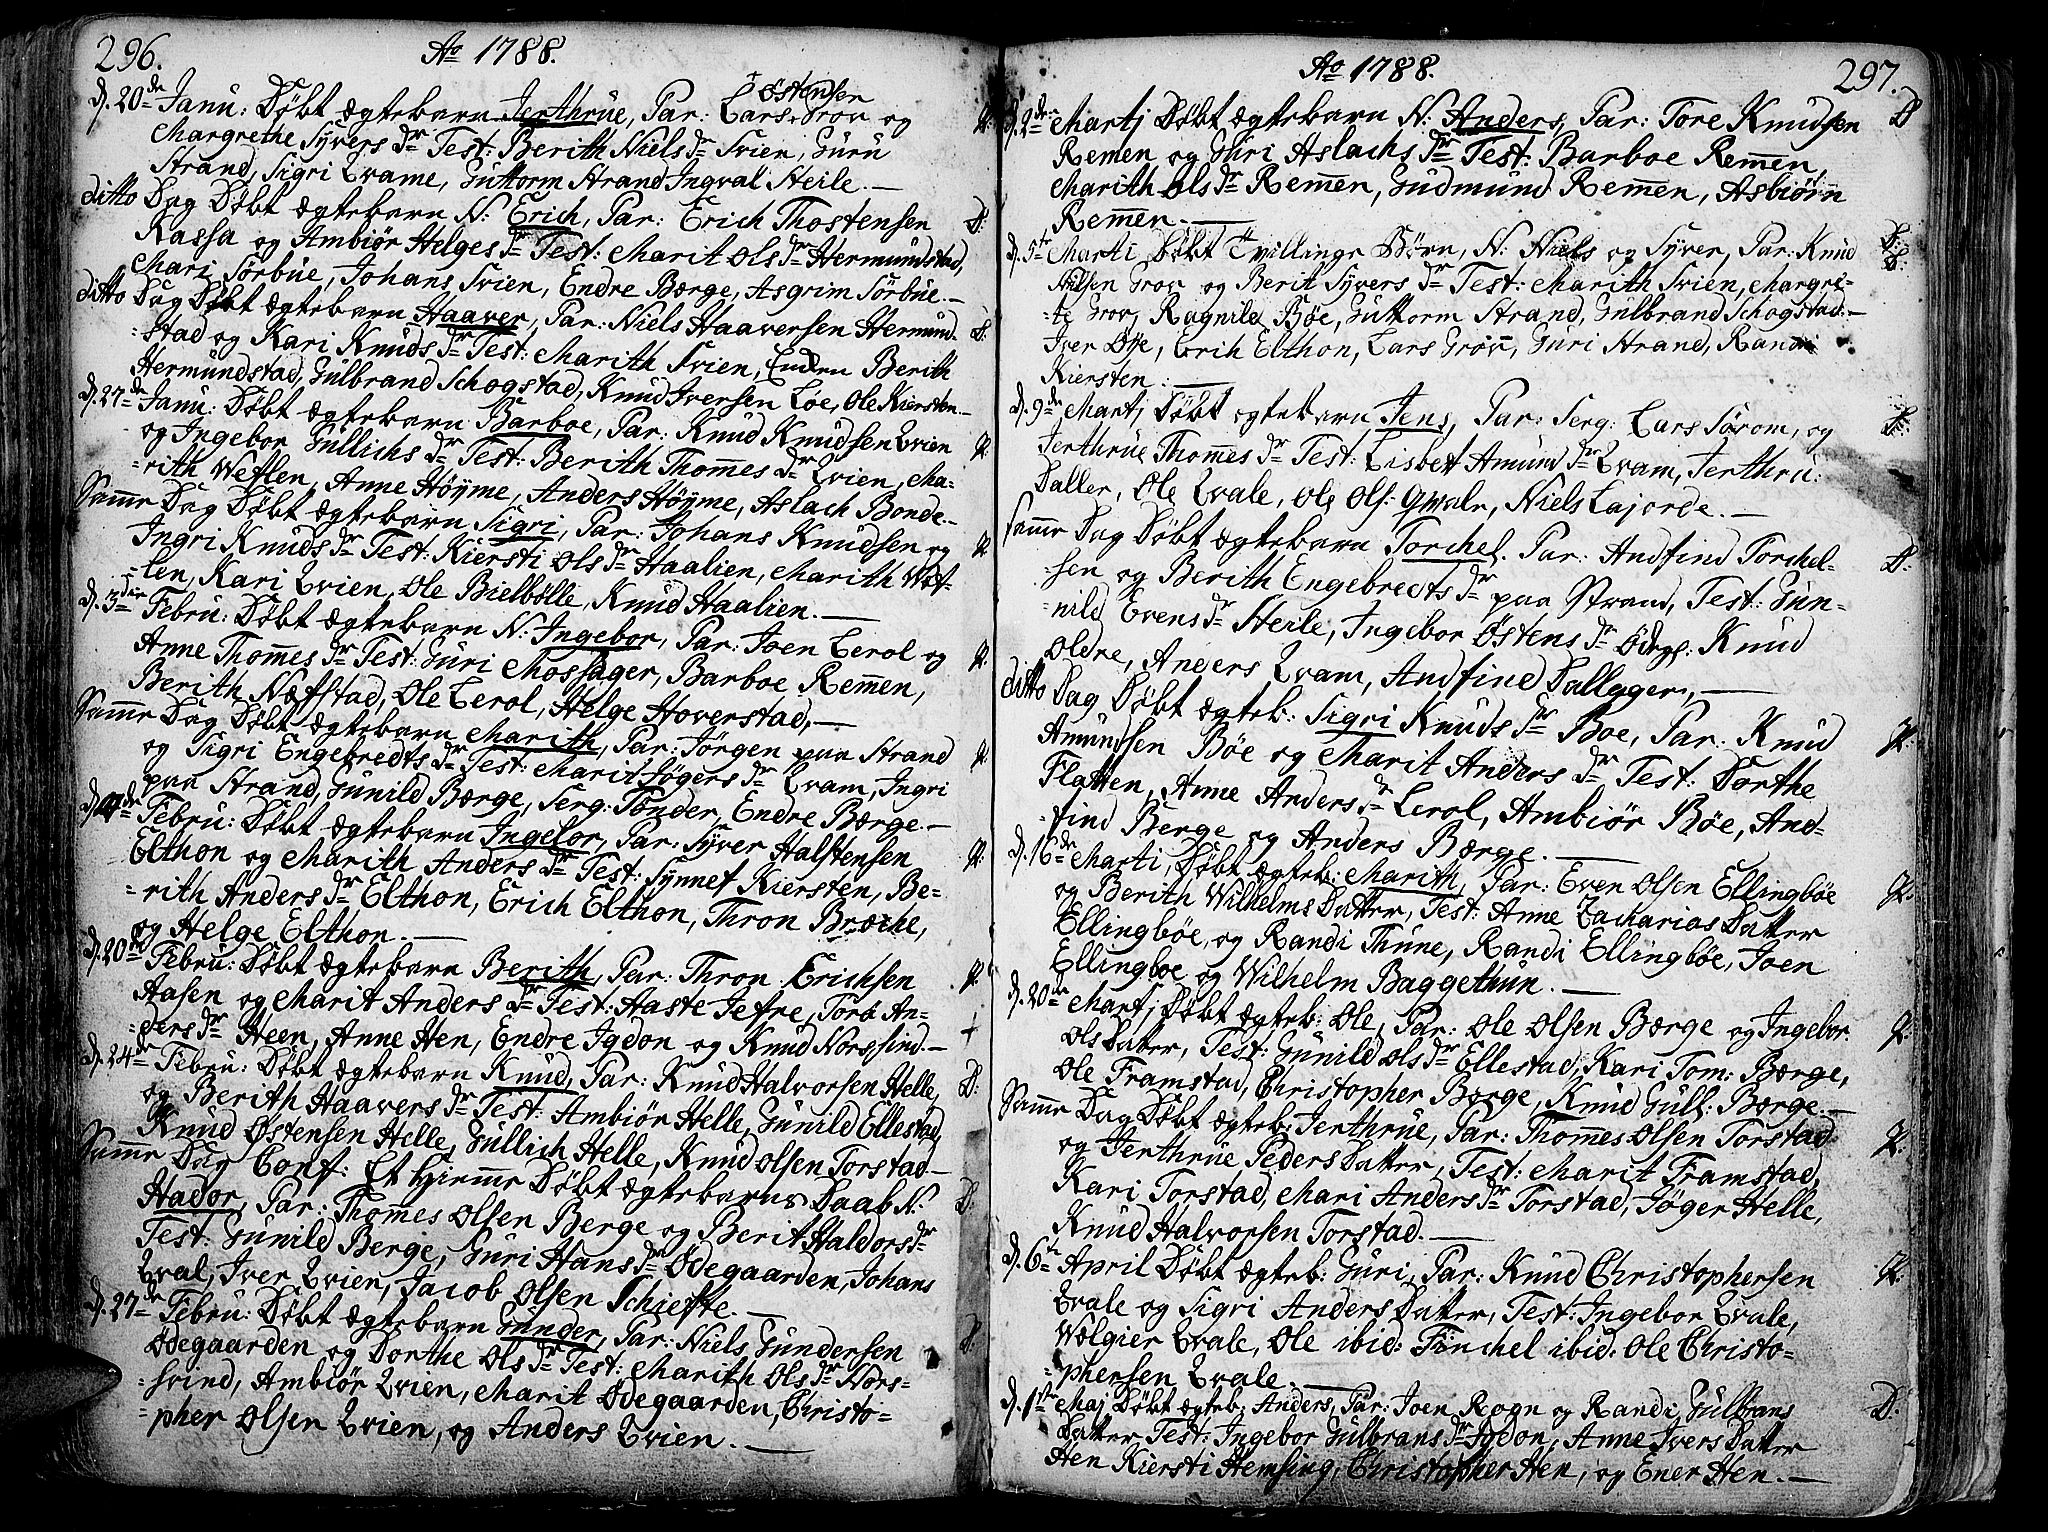 296.
Ao 1788.
d. 20de Janu: Døbt ægtebarn Jerthrue, Par: Lars Østensen Grov og
Margrethe Syvers Dr Test: Berith Niels Dr Svien, Guru
Strand, Sigri Qvame, Guttorm Strand Ingval Heile.
ditto Dag Døbt ægtebarn N: Erich, Par: Erich Thostensen D.
Rassa og Ambiør Helges Dr Test: Marit Ols Dr Hermundstad,
Mari Sørbue, Johans Svien, Endre Børge, Asgrim Sørbue.
ditto Dag Døbt ægtebarn Haaver, Par: Niels Haaversen Hermund- D.
=stad og Kari Knuds Dr Test: Marith Svien, Berith
Hermundstad, Gulbrand Schogstad, Knud Iversen Løe, Ole Kiersten.
d. 27de Janu: Døbt ægtebarn Barboe, Par: Knud Knudsen Qvien
og Ingebor Gullichs Dr Test: Berith Thomes Dr Qvien, Ma- P.
=rith Weflen, Anne Høyme, Anders Høyme, Aslach Bonde.
Samme Dag Døbt ægtebarn Sigri, Par: Johans Knudsen og
Ingri Knuds Dr Test: Kiersti Ols Dr Haalien, Marith Wef- P.
=len, Kari Qvien, Ole Bielbølle, Knud Haalien.
d. 3die Febru: Døbt ægtebarn N: Ingebor, Par: Joen Lerol og
Anne Thomes Dr Test: Guri Mossager, Barboe Remen, P.
Berith Næfstad, Ole Lerol, Helge Hoverstad,
Samme Dag Døbt ægtebarn Marith, Par: Jørgen paa Strand
og Sigri Engebredts Dr Test: Marit Jøgers Dr Qvam, Ingri P.
paa Strand, Gunild Børge, Serg: Tønder, Endre Børge.
d. 17de Febru: Døbt ægtebarn Ingebor, Par: Syver Halstensen
Elthon og Marith Anders Dr Test: Synnef Kiersten, Be- P.
=rith Anders Dr Elthon, Erich Elthon, Thron Bræche,
og Helge Elthon.
d. 20de Febru: Døbt ægtebarn Berith, Par: Thron Erichsen
Aasen og Marit Anders Dr Test: Haste Jefre, Torb. An- P.
=ders Dr Heen, Anne Hen, Endre Igdon og Knud Norsfind.
d. 24de Febru: Døbt ægtebarn Knud, Par: Knud Halvorsen Helle, D.
og Berith Haavers Dr Test: Ambiør Helle, Gunild Ellestad,
Knud Østensen Helle, Gullich Helle, Knud Olsen Torstad
Samme Dag Conf: Et Hjemme Døbt ægtebarns Daab N:
Hador, Par: Thomes Olsen Berge og Berit Haldors Dr D.
Test: Gunild Berge, Guri Hans Dr Ødegaarden, Johans
Qval, Iver Qvien, Jacob Olsen Schiefte.
d. 27de Febru: Døbt ægtebarn Gunder, Par: Niels Gundersen
Ødegaarden og Dorthe Ols Dr Test: Marith Ols Dr Nors- D.
=svind, Ambiør Qvien, Marit Ødegaarden, Christo-
=pher Olsen Qvien, og Anders Qvien.
297.
Ao 1788.
d. 2de Martj Døbt ægtebarn N: Anders, Par: Tore Knudsen D
Remen og Guri Aslachs Dr Test: Barboe Remen,
Marith Ols Dr Remen, Gudmund Remen, Asbiørn
Remen.
d. 5te Marti Døbt Tvillinge Børn, N: Niels og Syver, Par: Knud D:
Nilsen Grov og Berit Syvers Dr Test: Marith Svien, Margre- D:
=te Grov, Ragnild Bøe, Guttorm Strand, Gulbrand Schogstad.
Iver Øye, Erik Elthon, Lars Grov, Guri Strand, Randi
Kiersten.
d. 9de Martj Døbt ægtebarn Jens, Par: Serg: Lars Sørom, og D:
Jerthrue Thomes Dr Test: Lisbet Amund Dr Qvam, Jerthru:
Daller, Ole Qvale, Ole Ols: Qwale, Niels Lajorde.
Samme Dag Døbt ægtebarn Torchel. Par: Andfind Torchel- D:
=sen og Berith Engebredts Dr paa Strand, Test: Gun-
=nild Evens Dr Heile, Ingebor Østens Dr Ødegs: Knud
Oldre, Anders Qvam, Andfind Dallager,
ditto Dag Døbt ægteb: Sigri Knuds Dr Boe, Par: Knud
Amundsen Bøe og Marit Anders Dr Test: Dorthe P.
Flatten, Anne Anders Dr Lerol, Ambiør Bøe, And-
=find Berge og Anders Børge.
d. 16de Marti, Døbt ægteb: Marith, Par: Even Olsen Ellingbøe P.
og Berith Wilhelms Datter, Test: Anne Zacharias Datter
Ellingbøe, og Randi Thune, Randi Ellingbøe, Joen
Ellingboe og Wilhelm Baggethun.
d. 20de Martj Døbt ægteb: Ole, Par: Ole Olsen Børge og Ingebor P.
Ols Datter, Test: Gunild Ols Dr Ellestad, Kari Tom: Børge,
Ole Framstad, Christopher Børge, Knud Gull: Børge.
Samme Dag Døbt ægteb: Jerthrue, Par: Thomes Olsen Torstad
og Jerthrue Peders Datter, Test: Marit Framstad, P.
Kari Torstad, Mari Anders Dr Torstad, Jøger Helle,
Knud Halvorsen Torstad.
d. 6te April Døbt ægteb: Guri, Par: Knud Christophersen P.
Qvale og Sigri Anders Datter, Test: Ingebor Qvale,
Wølgier Qvale, Ole ibid: Finchel ibid: Ole Christo-
=phersen Qvale.
d. 1ste Maj Døbt ægteb: Anders, Par: Joen Rogn og Randi Gulbrans D.
Datter Test: Ingebor Gulbrans Dr Igdon, Anne Ivers Datter
Hen Kiersti Hemsing, Christopher Hen, og Ener Hen.